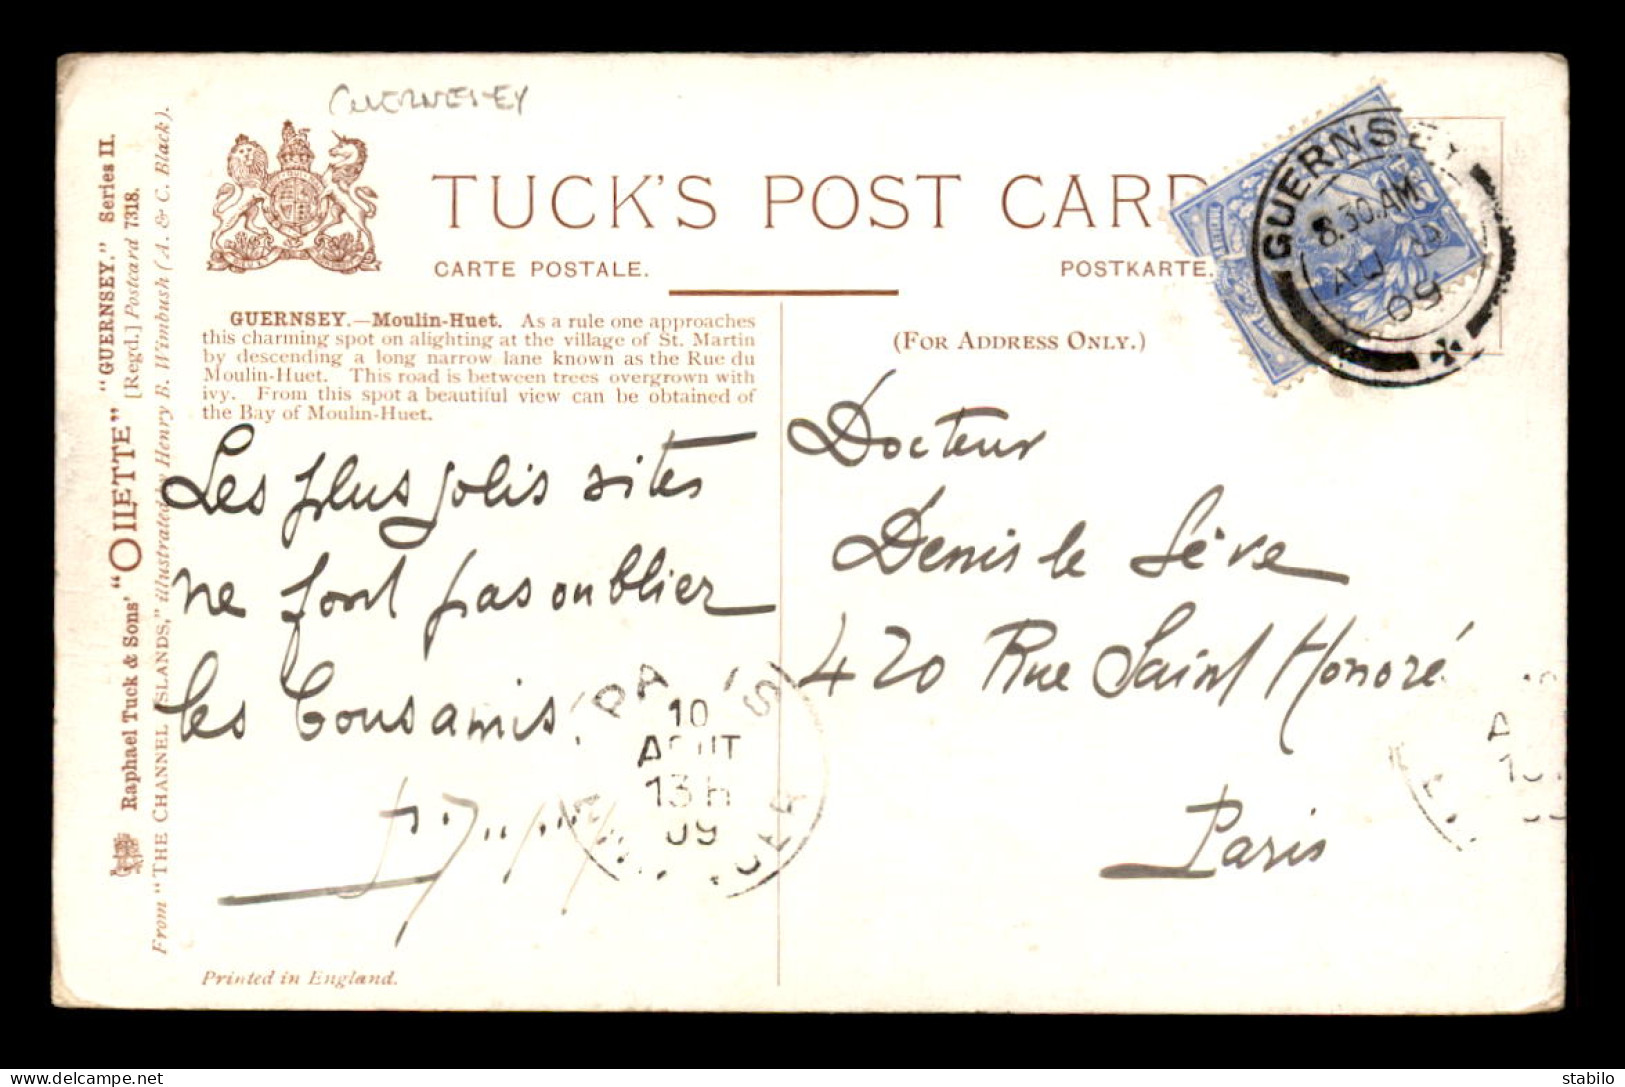 GUERNESEY
TUCK'S POST CARD
CARTE POSTALE.
POSTKARTE.
GUERNSEY.—Moulin-Huet. As a rule one approaches
this charming spot on alighting at the village of St. Martin
by descending a long narrow lane known as the Rue du
Moulin-Huet. This road is between trees overgrown with
ivy. From this spot a beautiful view can be obtained of
the Bay of Moulin-Huet.
(FOR ADDRESS ONLY.)
GUERNSEY
8.30.AM
AU
09
Les plus jolis sites
ne font pas oublier
les bons amis
Docteur
Denis le Sève
420 Rue Saint Honoré
Paris
PA S
10
AOUT
13 H
09
Printed in England.
Raphael Tuck & Sons' "OILETTE" "GUERNSEY." Series II.
[Regd.] Postcard 7318.
From "THE CHANNEL ISLANDS," illustrated by Henry B. Wimbush (A. & C. Black).
stabilo